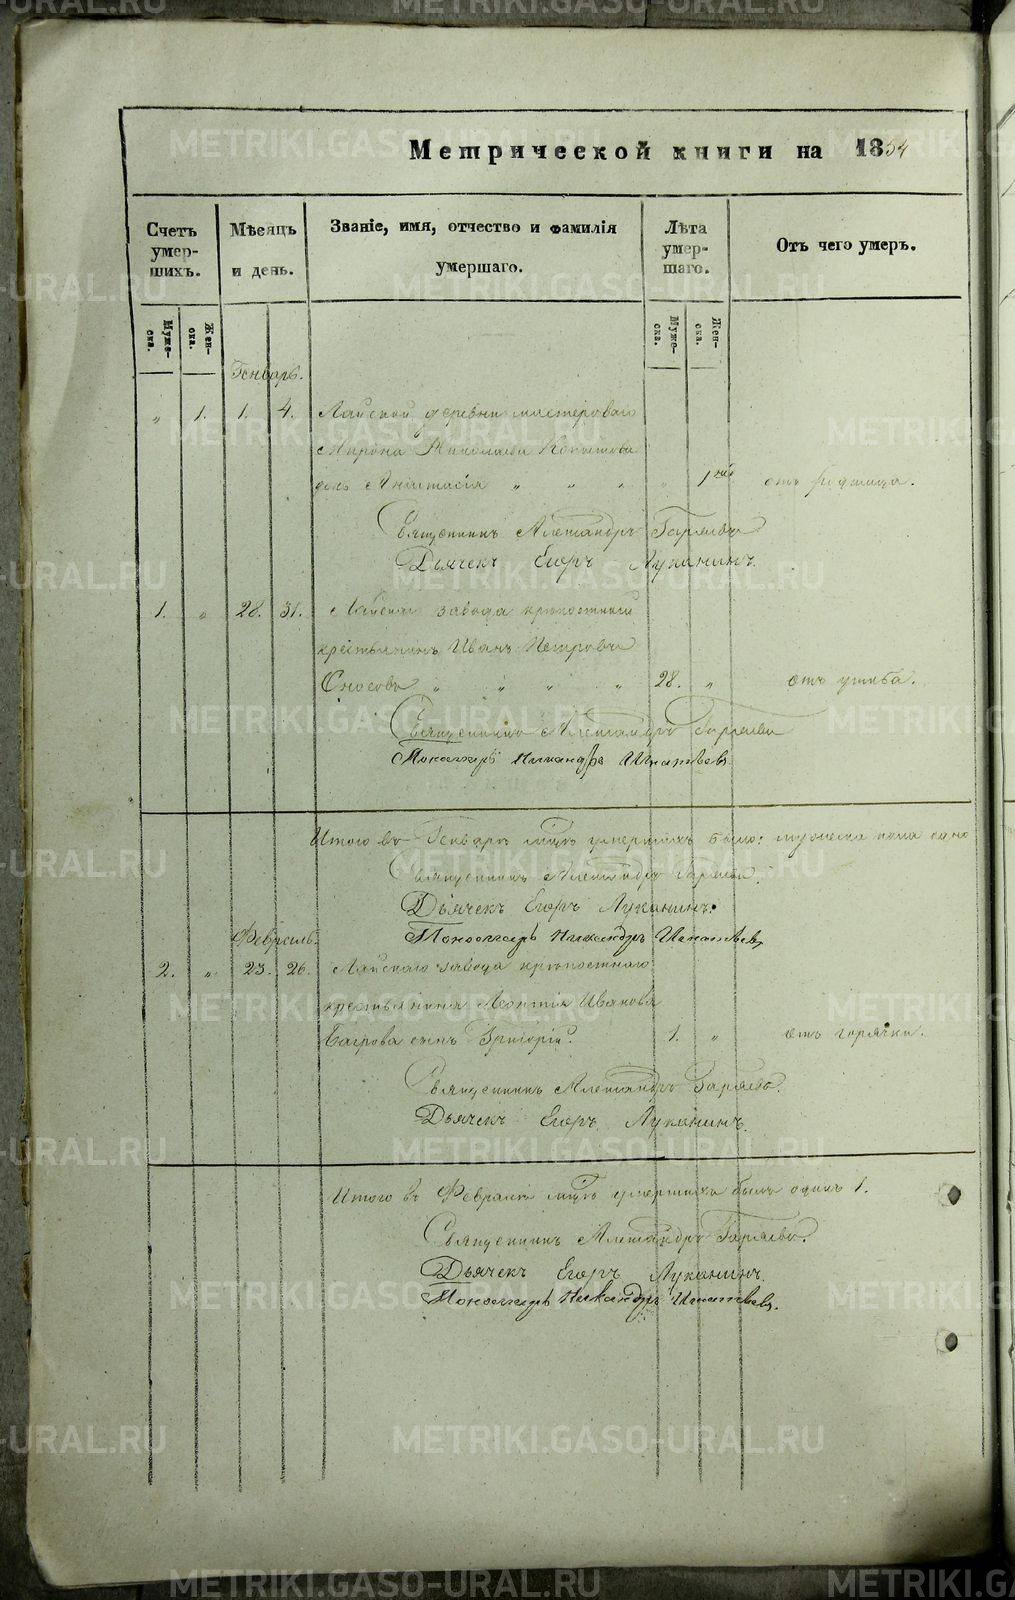 Метрической книги на 1854
Счетъ умер-шихъ.
Мѣсяцъ и день.
Званіе, имя, отчество и фамилія умершаго.
Лѣта умер-шаго.
Отъ чего умеръ.
Муже-ска.
Жен-ска.
Муже-ска.
Жен-ска.
Генварь.
" 1. 1. 4. Лайской деревни мастероваго
Мирона Николаева Копытова
дочь Анастасія " " " " 1 отъ родимца.
Священникъ Александръ Гаряевъ
Дьячекъ Егоръ Луканинъ.
1. " 28. 31. Лайскаго завода крѣпостный
крестьянинъ Иванъ Петровъ
Сносовъ " " " " 28. " отъ ушиба.
Священникъ Александръ Гаряевъ
Пономарь Никандръ Игнатьевъ
Итого въ Генварѣ мцѣ умершихъ было: мужеска пола одно
Священникъ Александръ Гаряевъ.
Дьячекъ Егоръ Луканинъ.
Пономарь Никандръ Игнатьевъ
Февраль.
2. " 23. 26. Лайскаго завода крѣпостнаго
крестьянина Леонтія Иванова
Багрова сынъ Григорій. 1. " отъ горячки.
Священникъ Александръ Гаряевъ.
Дьячекъ Егоръ Луканинъ.
Итого въ Февралѣ мцѣ умершихъ былъ одинъ 1.
Священникъ Александръ Гаряевъ.
Дьячекъ Егоръ Луканинъ.
Пономарь Никандръ Игнатьевъ.
METRIKI.GASO-URAL.RU